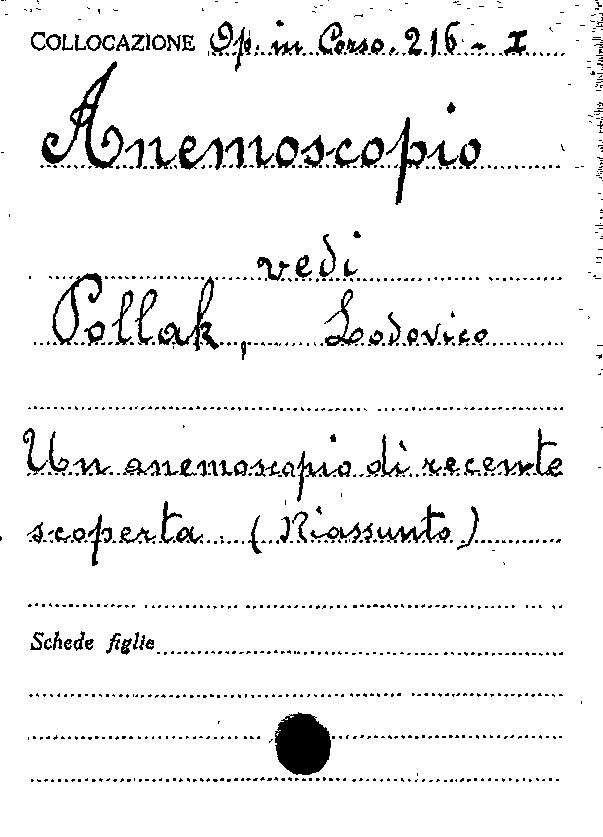 COLLOCAZIONE Op. in Corso. 216 - I
Anemoscopio
vedi
Pollak, Lodovico
Un anemoscopio di recente
scoperta (Riassunto)
Schede figlie